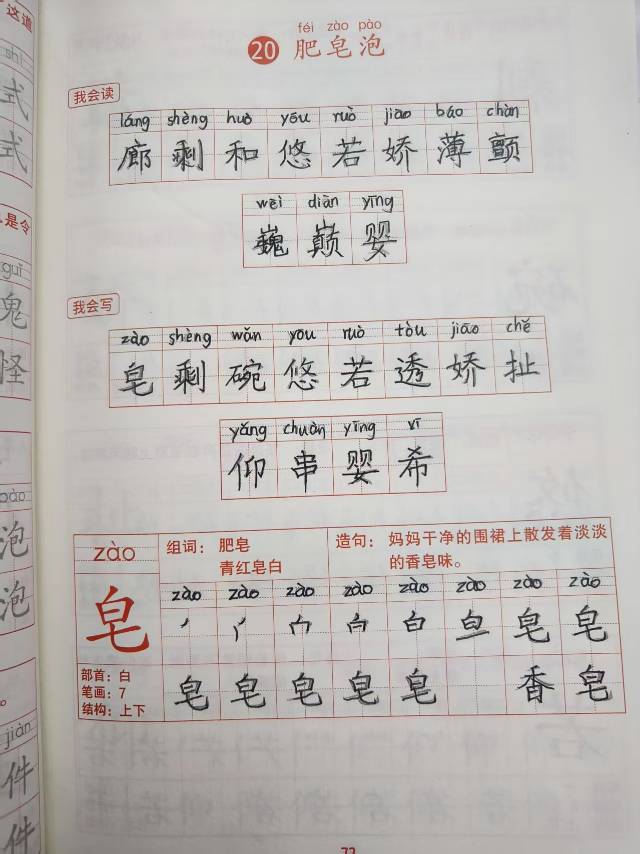 féi zào pào
20 肥皂泡
我会读
láng shèng huò yōu ruò jiāo báo chàn
廊 剩 和 悠 若 娇 薄 颤
wēi diān yīng
巍 巅 婴
我会写
zào shèng wǎn yōu ruò tòu jiāo chě
皂 剩 碗 悠 若 透 娇 扯
yǎng chuàn yīng xī
仰 串 婴 希
zào
皂
部首：白
笔画：7
结构：上下
组词： 肥皂
青红皂白
造句： 妈妈干净的围裙上散发着淡淡
的香皂味。
zào zào zào zào zào zào zào zào
白 皂 皂
皂 皂 皂 皂 皂 香 皂
这道
shì
式
式
是令
guī
鬼
怪
泡
泡
jiàn
件
件